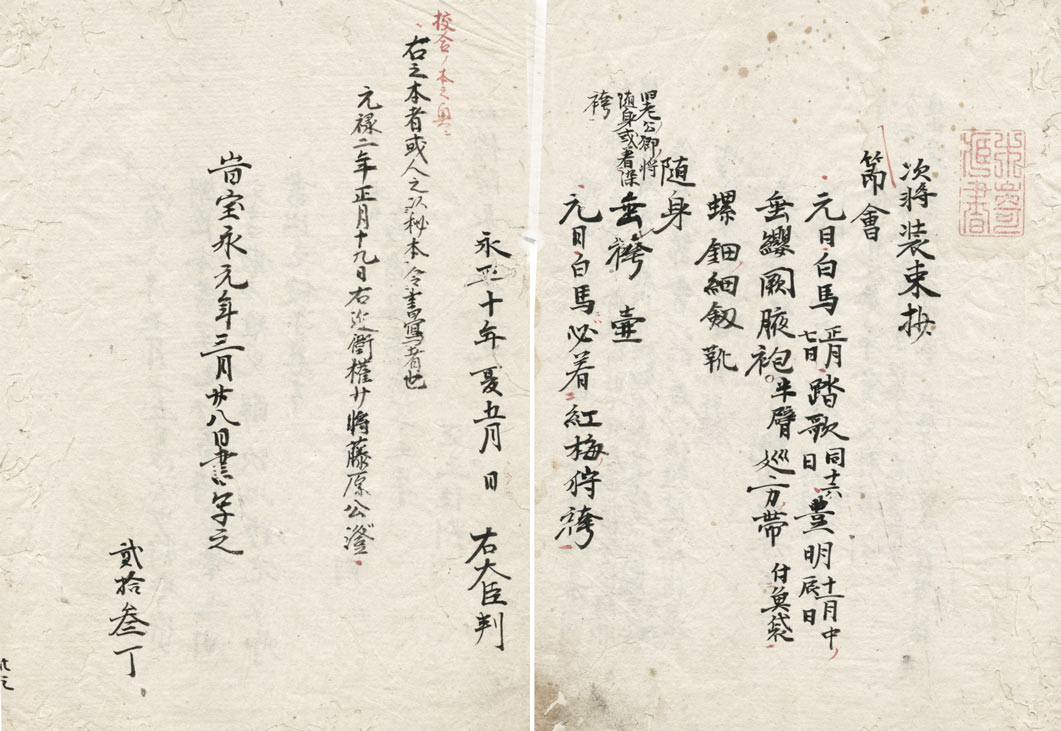 次將装束抄
節會
元日白馬正月七日踏歌同十六日豊明十一月中辰日
垂纓闕腋袍半臂巡方帶付魚袋
螺鈿細釼靴
随身
垂袴壷
元日白馬必着紅梅狩袴
永正十年夏五月日 右大臣判
校合ノ本之奥ニ
右之本者或人之以秘本令書寫者也
元禄二年正月十九日右近衛權少將藤原公澄
旹宝永元年三月廿八日書写之
貳拾叁丁